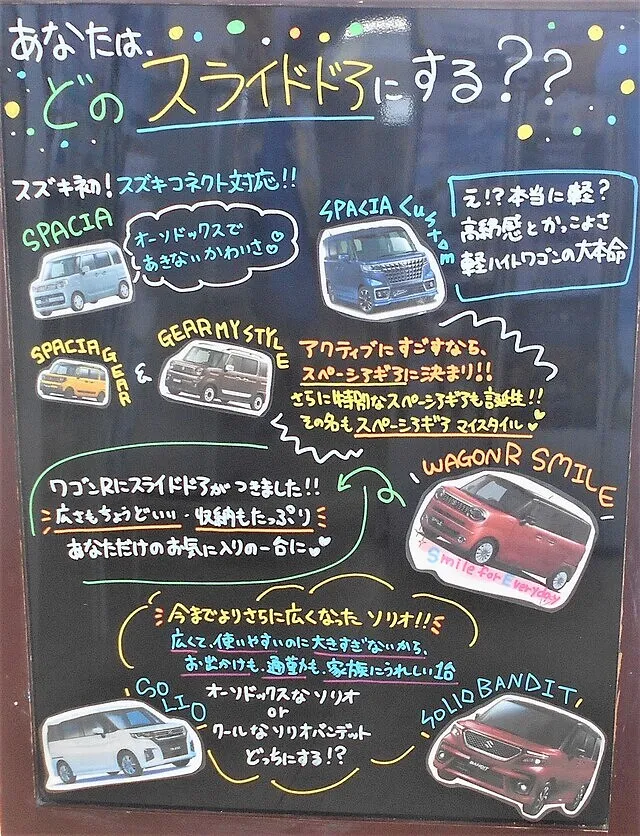 あなたは、
どのスライドドアにする??
スズキ初!スズキコネクト対応!!
SPACIA
オーソドックスで
あきないかわいさ♡
SPACIA Custom
え!?本当に軽?
高級感とかっこよさ
軽ハイトワゴンの大本命
SPACIA GEAR
&
GEAR MY STYLE
アクティブにすごすなら、
スペーシアギアに決まり!!
さらに特別なスペーシアギアも誕生!!
その名もスペーシアギア マイスタイル♥
ワゴンRにスライドドアがつきました!!
広さもちょうどいい・収納もたっぷり
あなただけのお気に入りの一台に♥♥
WAGONR SMILE
Smile for Everyday
今までよりさらに広くなった ソリオ!!
広くて、使いやすいのに大きすぎないから、
お出かけも、通勤も、家族にうれしい1台
SOLIO
オーソドックスなソリオ
or
クールなソリオバンデット
どっちにする!?
SOLIO BANDIT
BANDIT